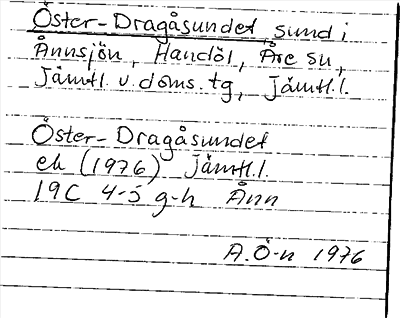 Öster-Dragåsundet, sund i
Ånnsjön, Handöl, Åre sn,
Jämtl. v. doms. tg, Jämtl. l.
Öster-Dragåsundet
ek (1976) Jämtl. l.
19C 4-5 g-h Ånn
A. Ö-n 1976